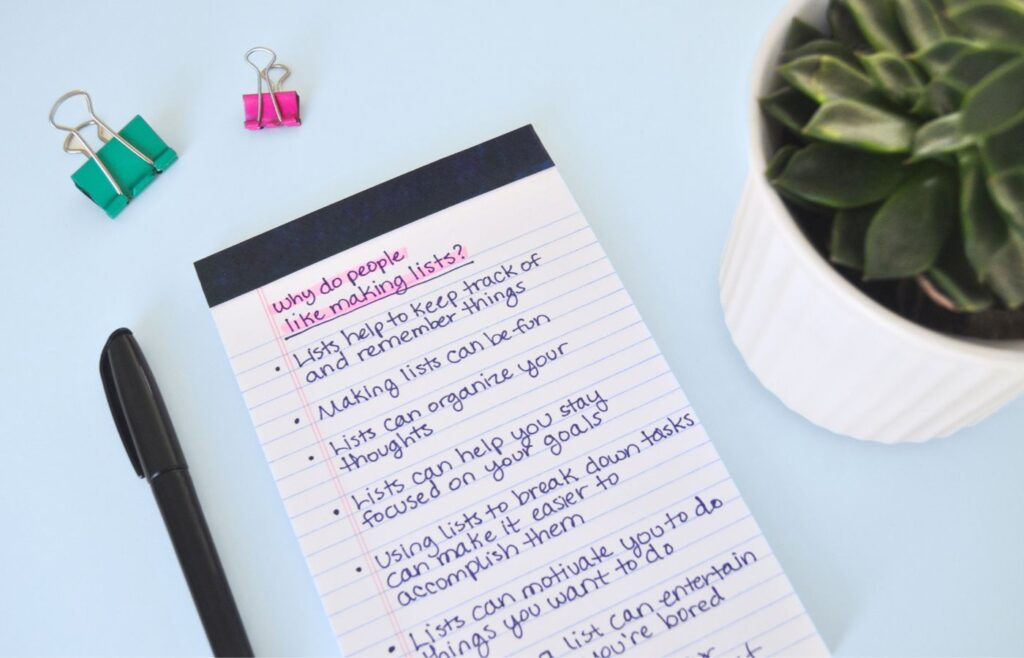 Why do people
like making lists?
• Lists help to keep track of
and remember things
• Making lists can be fun
• Lists can organize your
thoughts
• Lists can help you stay
focused on your goals
• Using lists to break down tasks
can make it easier to
accomplish them
• Lists can motivate you to do
things you want to do
a list can entertain
you're bored